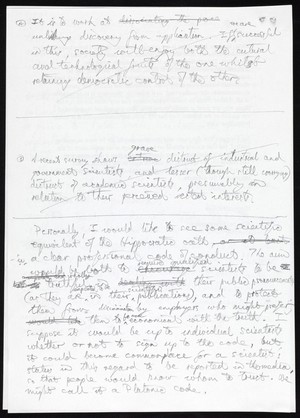 It is to work at dissociating the pure
making discovery from application. If successful
in this, society will enjoy both the cultural
and technological fruits of the one whilst
retaining democratic control of the other.
grave
A recent survey shows distrust of industrial and
government scientists, and lesser (though still worrying)
distrust of academic scientists, presumably in
relation to their perceived vested interests.
Personally, I would like to see some scientific
equivalent of the Hippocratic oath,
a clear professional code of conduct. The aim
would scientists to be
truthful in their public pronouncements
(as they are in their publications), and to protect
them from employers who might prefer
them to be economical with the truth. I
suppose it would be up to individual scientists
whether or not to sign up to the code, but
it could become commonplace for a scientist's
status in this regard to be reported in the media,
so that people would know whom to trust. We
might call it a Platonic code.